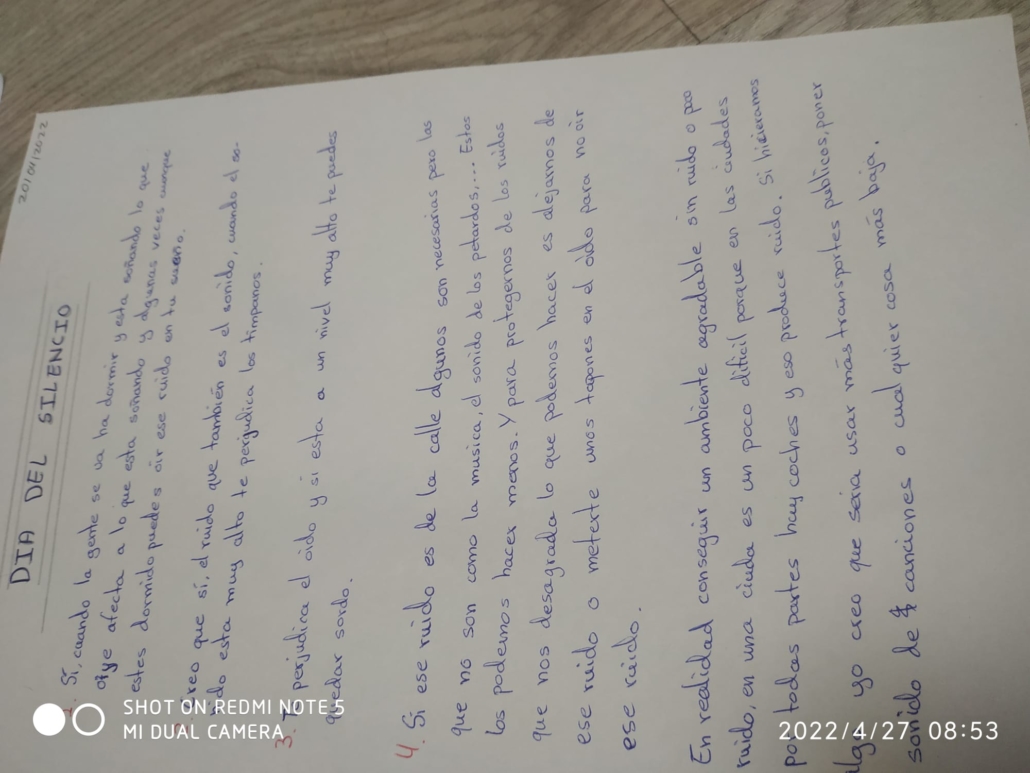 20/04/2022
DIA DEL SILENCIO
1. Sí, cuando la gente se va ha dormir y esta soñando lo que
oiye afecta a lo que esta soñando y algunas veces aunque
estes dormido puedes oir ese ruido en tu sueño.
2. Creo que sí, el ruido que también es el sonido, cuando el so-
nido esta muy alto te perjudica los timpanos.
3. Te perjudica el oido y si esta a un nivel muy alto te puedes
quedar sordo.
4. Si ese ruido es de la calle algunos son necesarias pero las
que no son como la musica, el sonido de los petardos,... Estos
los podemos hacer menos. Y para protegernos de los ruidos
que nos desagrada lo que podemos hacer es alejarnos de
ese ruido o meterte unos tapones en el oido para no oir
ese ruido.
En realidad conseguir un ambiente agradable sin ruido o poco
ruido, en una ciuda es un poco dificil porque en las ciudades
por todas partes hay coches y eso produce ruido. Si hicieramos
algo yo creo que seria usar más transportes publicos, poner
sonido de canciones o cualquier cosa más baja.
SHOT ON REDMI NOTE 5
MI DUAL CAMERA
2022/4/27 08:53